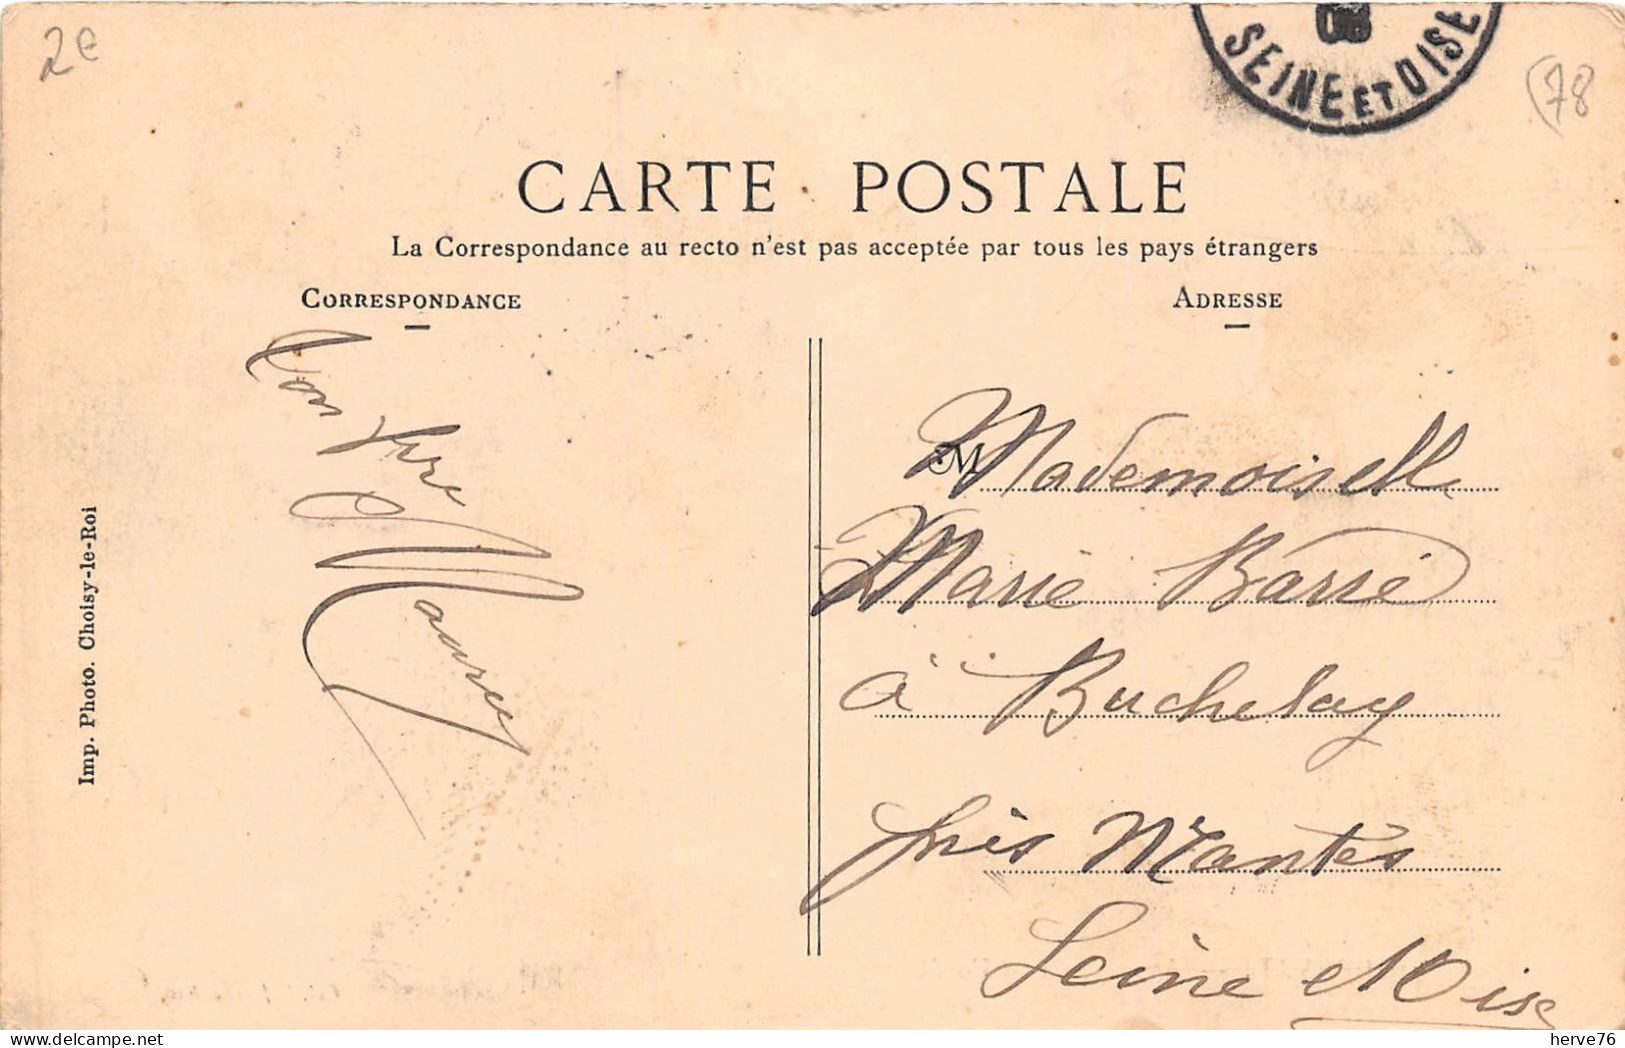 2e
08
SEINE ET OISE
(78
CARTE POSTALE
La Correspondance au recto n'est pas acceptée par tous les pays étrangers
CORRESPONDANCE
ADRESSE
Ton frère
M
Mademoiselle
Marie Barré
à Buchelay
près Mantes
Seine et Oise
Imp. Photo. Choisy-le-Roi
herve76